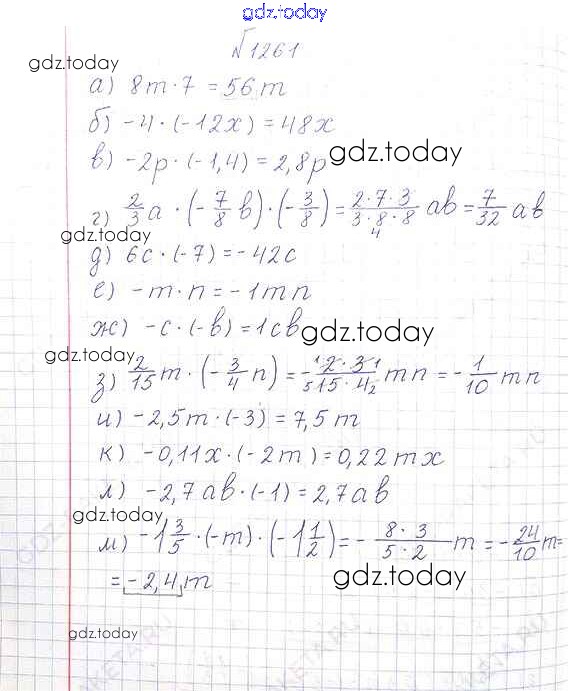 gdz.today
№1261
gdz.today
а) 8m·7 = 56m
б) -4·(-12x) = 48x
в) -2p·(-1,4) = 2,8p gdz.today
г) 2/3 a · (-7/8 b) · (-3/8) = 2·7·3/3·8·8 4 ab = 7/32 ab
gdz.today
д) 6c·(-7) = -42c
е) -m·n = -1mn
ж) -c·(-b) = 1cb gdz.today
gdz.today
з) 2/15 m · (-3/4 n) = -1 2·3 1/5 15·4 2 mn = -1/10 mn
и) -2,5m·(-3) = 7,5m
к) -0,11x·(-2m) = 0,22mx
л) -2,7ab·(-1) = 2,7ab
gdz.today
м) -1 3/5 ·(-m)·(-1 1/2) = -8·3/5·2 m = -24/10 m =
= -2,4m gdz.today
gdz.today